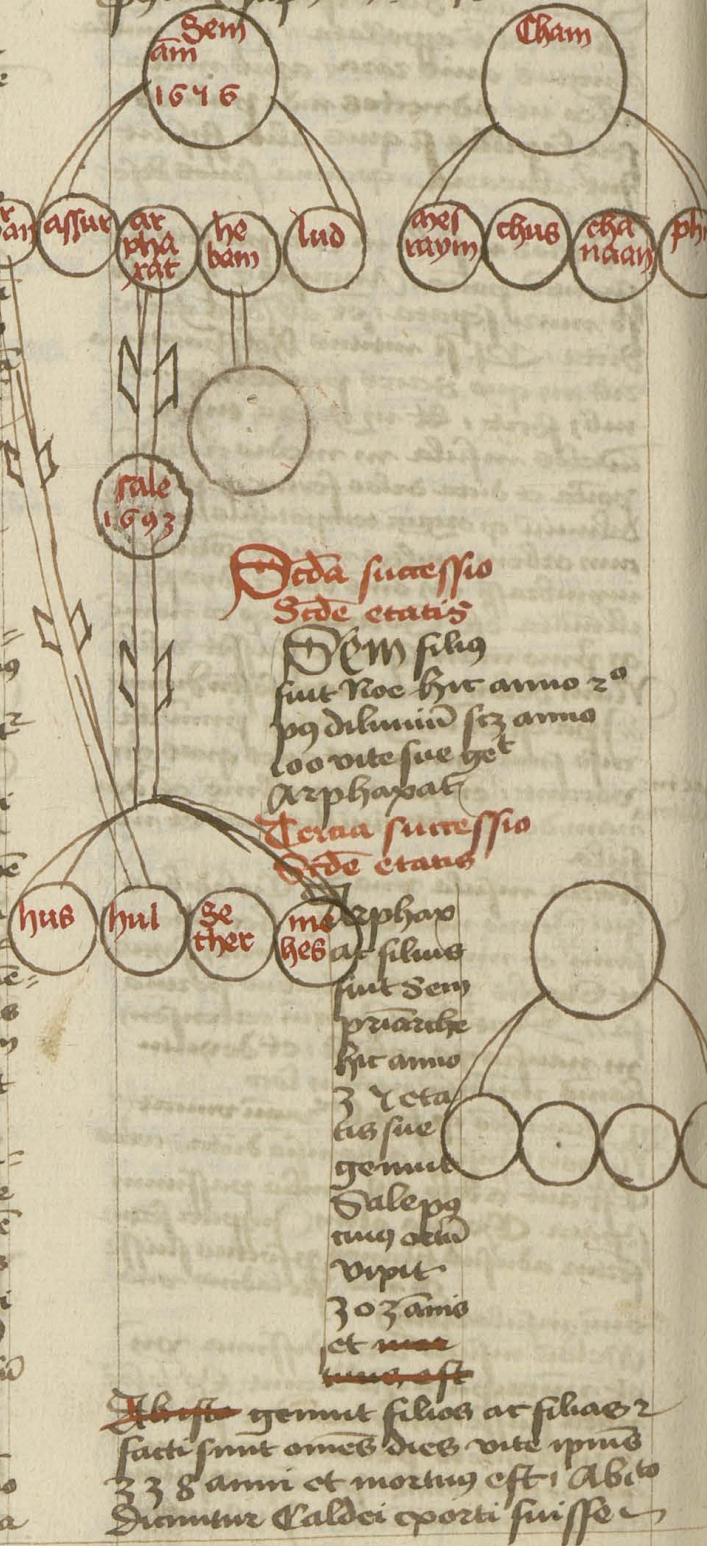 Sem
am
1656
Cham
assur
ar
pha
xat
he
bam
lud
mes
raym
chus
cha
naan
sale
1693
Scda successio
Scde etatis
Sem filiꝯ
fuit Noe hic anno 2º
pꝯ diluuiū scz anno
100 vite sue geᵗ
Arphaxat
Tercia successio
Scde etatis
hus
hul
Ge
ther
me
hes
Arphax
at filius
fuit Sem
priarche
hic anno
35 eta
tis sue
genuit
Sale pꝯ
cuiꝯ ortū
vixit
303 ānis
et mor
tuus est
genuit filios ac filias 2
facti sunt omēs dies vite ipiuˢ
338 anni et mortuꝯ est Ab itº
dicuntur Caldei exorti fuisse